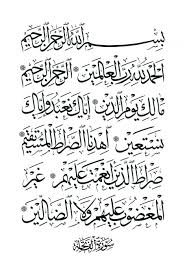 بسم الله الرحمن الرحيم
الحمد لله رب العالمين * الرحمن الرحيم *
مالك يوم الدين * إياك نعبد وإياك
نستعين * اهدنا الصراط المستقيم *
صراط الذين أنعمت عليهم * غير
المغضوب عليهم ولا الضالين
سورة الفاتحة